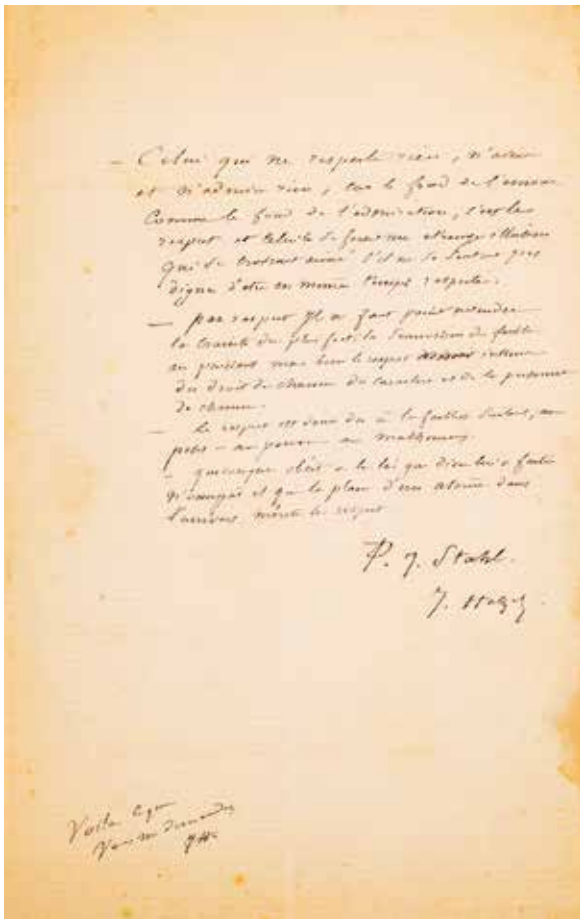 — Celui qui ne respecte rien, n'aime
et n'admire rien, car le fond de l'amour
Comme le fond de l'admiration, c'est le
respect et celui là serait une étrange illusion
qui se croirait aimé s'il ne se sentait pas
digne d'être en même temps respecté.
— par respect Il ne faut point entendre
la crainte du plus fort, la soumission du faible
au puissant mais bien le respect intime
du droit de chacun du caractère et de la personne
de chacun.
— le respect est donc du à la faiblesse surtout, au
petit — au pauvre au malheureux
— quiconque obéit à la loi que dieu lui a faite
et que la place d'un atome dans
l'univers, mérite le respect
P. J. Stahl.
J. Hetzel
Voilà ce que
Vous me demandez
JH